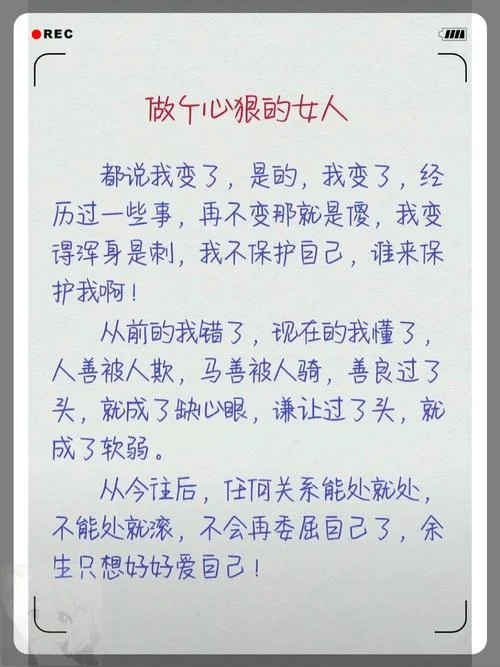 REC
做个心狠的女人
都说我变了，是的，我变了，经
历过一些事，再不变那就是傻，我变
得浑身是刺，我不保护自己，谁来保
护我啊！
从前的我错了，现在的我懂了，
人善被人欺，马善被人骑，善良过了
头，就成了缺心眼，谦让过了头，就
成了软弱。
从今往后，任何关系能处就处，
不能处就滚，不会再委屈自己了，余
生只想好好爱自己！